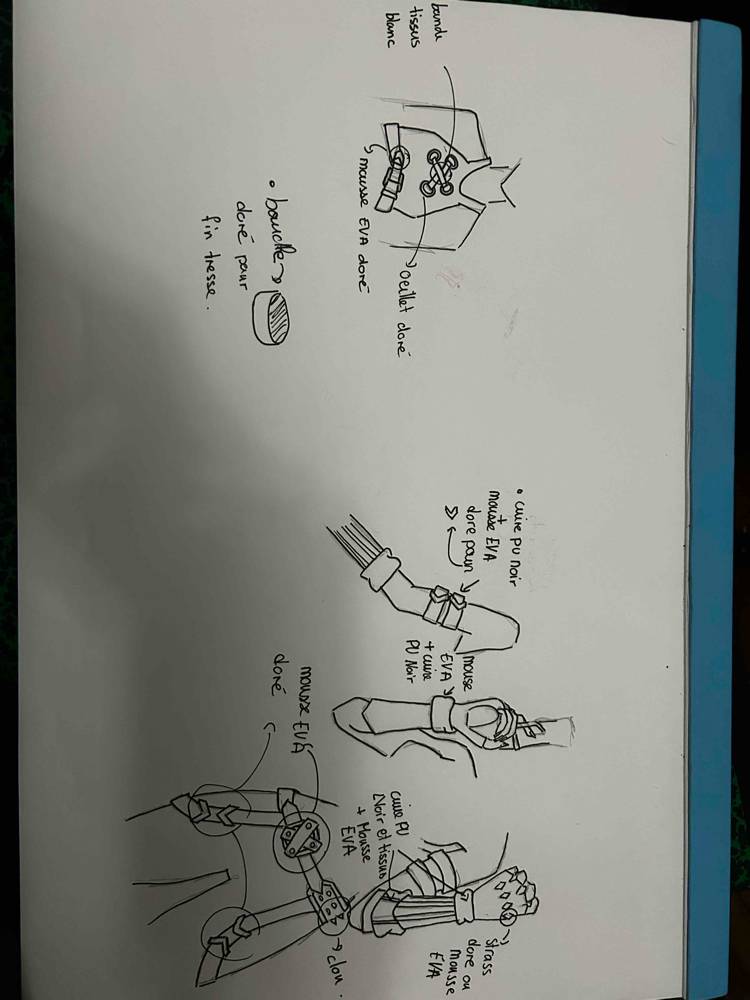 bande
tissus
blanc
mousse EVA doré
oeillet doré
• boucle
doré pour
fin tresse.
• cuire PU noir
+
mousse EVA
doré pour
mousse
EVA
+ cuire
PU Noir
mousse EVA
doré
cuire PU
Noir et tissus
+ Mousse
EVA
strass
doré ou
mousse
EVA
clou.